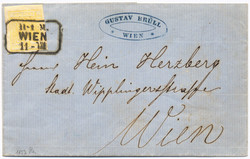 WIEN
GUSTAV BRÜLL
WIEN
Herrn Hein Herzberg
Stadt Wipplingerstrasse
Wien